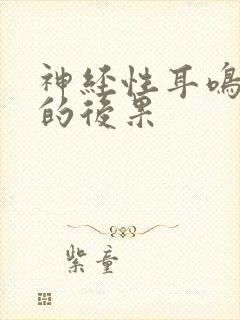 神经性耳鸣
的後果
紫童